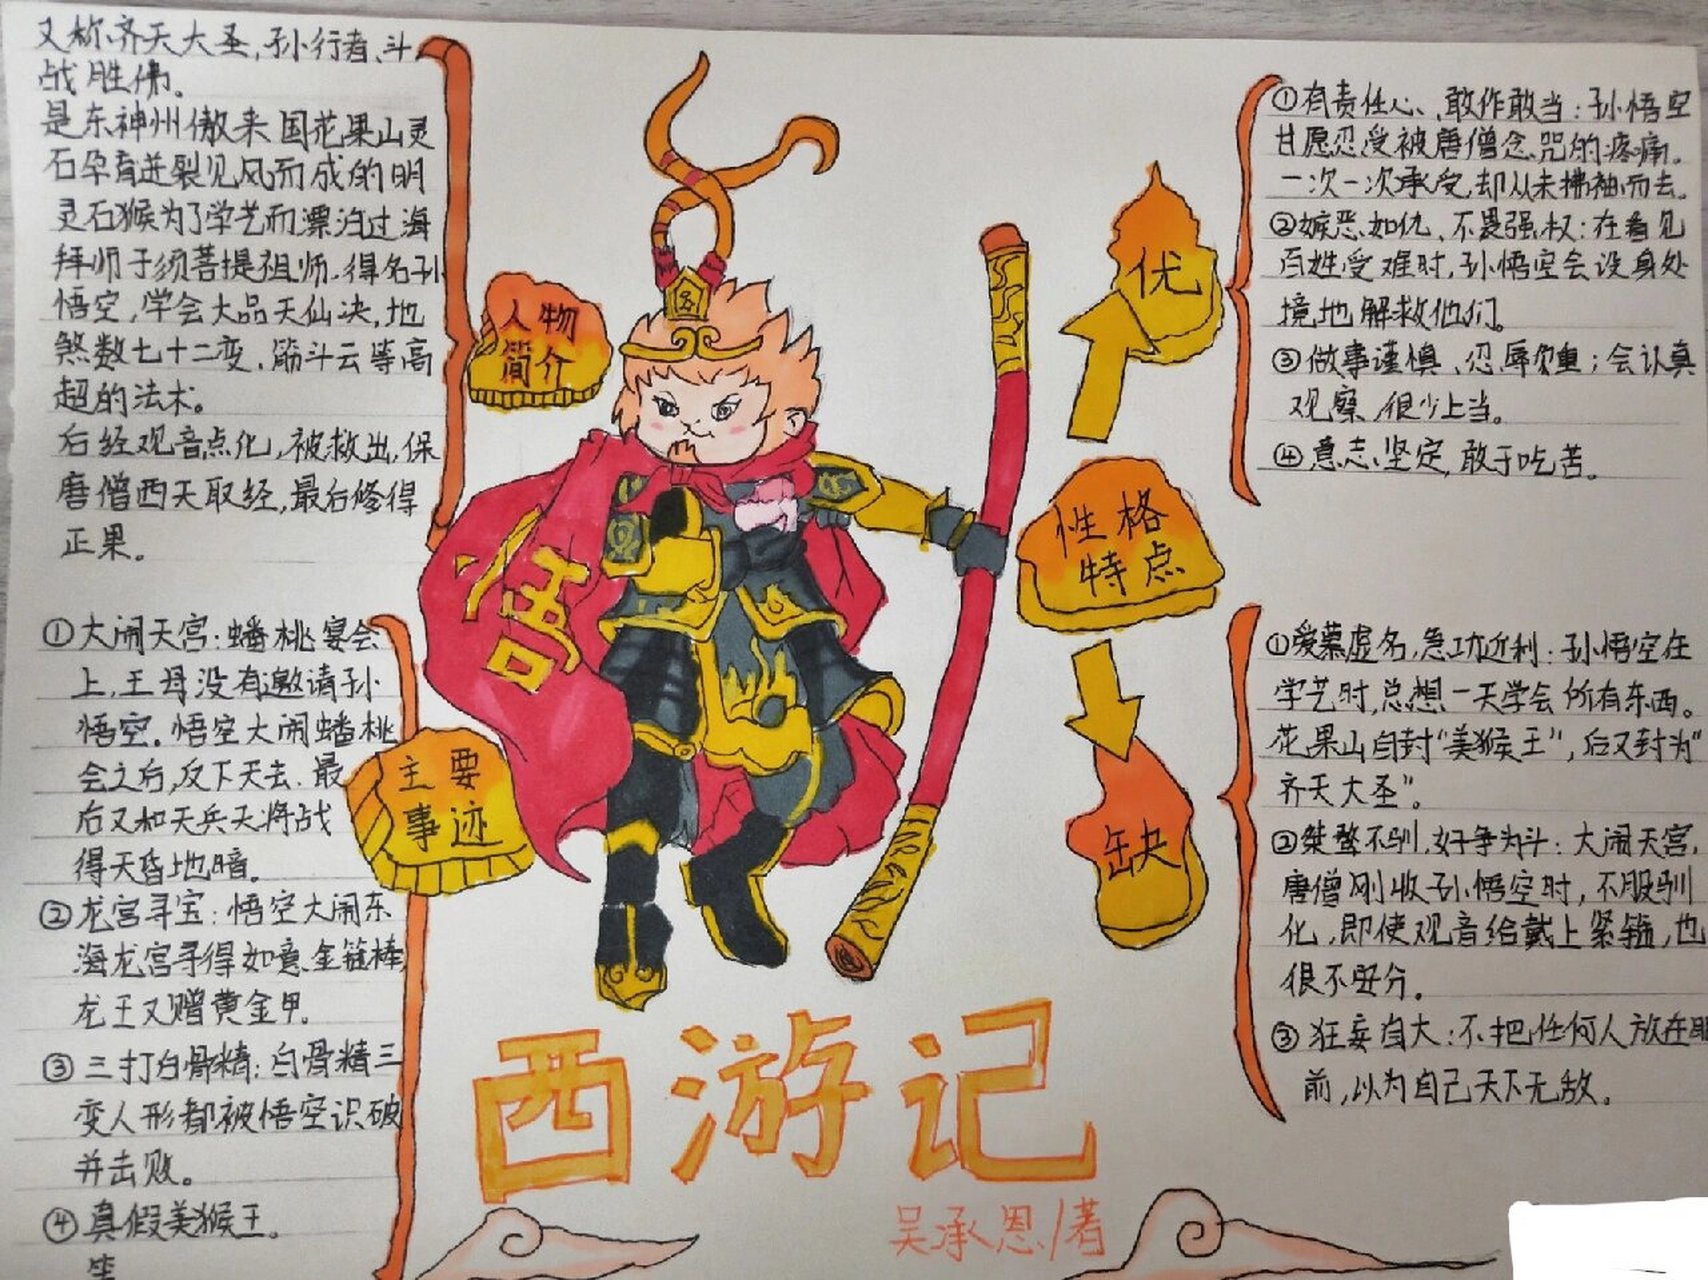 又称齐天大圣,孙行者、斗
战胜佛。
是东神州傲来国花果山灵
石孕育迸裂见风而成的明
灵石猴为了学艺而漂泊过海
拜师于须菩提祖师.得名孙
悟空,学会大品天仙决,地
煞数七十二变.筋斗云等高
超的法术。
后经观音点化,被救出,保
唐僧西天取经,最后修得
正果。
人物
简介
①大闹天宫:蟠桃宴会
上,王母没有邀请孙
悟空.悟空大闹蟠桃
会之后,反下天去.最
后又和天兵天将战
得天昏地暗。
②龙宫寻宝:悟空大闹东
海龙宫寻得如意金箍棒,
龙王又赠黄金甲.
③三打白骨精:白骨精三
变人形都被悟空识破
并击败。
④真假美猴王。
等
主要
事迹
悟
西游记
吴承恩/著
性格
特点
优
①有责任心、敢作敢当:孙悟空
甘愿忍受被唐僧念咒的疼痛。
一次一次承受,却从未拂袖而去。
②嫉恶如仇、不畏强权:在看见
百姓受难时,孙悟空会设身处
境地解救他们。
③做事谨慎、忍辱负重:会认真
观察,很少上当。
④意志坚定,敢于吃苦。
缺
①爱慕虚名,急功近利:孙悟空在
学艺时,总想一天学会所有东西。
花果山自封“美猴王”,后又封为“
齐天大圣”。
②桀骜不驯,好争为斗:大闹天宫,
唐僧刚收孙悟空时,不服驯
化,即使观音给戴上紧箍,也
很不安分。
③狂妄自大:不把任何人放在眼
前,以为自己天下无敌。